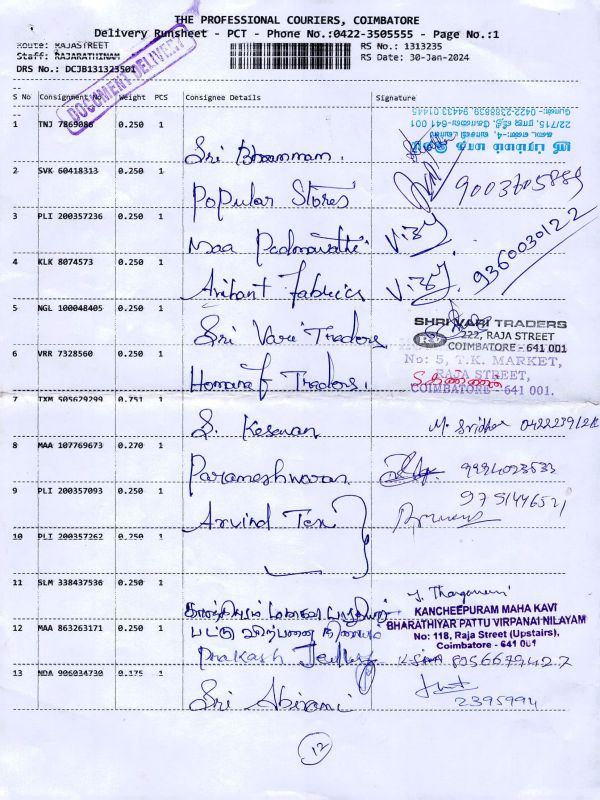 THE PROFESSIONAL COURIERS, COIMBATORE
Delivery Runsheet - PCT - Phone No.:0422-3505555 - Page No.:1
Route: RAJASTREET
RS No.: 1313235
Staff: RAJARATHINAM
RS Date: 30-Jan-2024
DRS No.: DCJB131323501
DOCUMENT DELIVERY
S No Consignment No Weight PCS Consignee Details Signature
1 TNJ 7869086 0.250 1 Sri Bhramman.
22/715, ராஜ வீதி, கோவை-641 001
0422-2388839, 94433 01445
2 SVK 60418313 0.250 1 Popular Stores 9003705889
3 PLI 200357236 0.250 1 Maa Padmavathi Vijay
4 KLK 8074573 0.250 1 Arihant Fabrics Vijay. 9360030122
5 NGL 100048405 0.250 1 Sri Vari Traders
SHRI VARI TRADERS
222, RAJA STREET
COIMBATORE - 641 001
6 VRR 7328560 0.250 1 Traders.
No: 5, T.K. MARKET,
RAJA STREET,
COIMBATORE - 641 001.
7 TXM 505629299 0.751 1 S. Kesavan M. Sridhar
8 MAA 107769673 0.270 1 Parameshwaran 9994023533
9 PLI 200357093 0.250 1 Arvind Tex 9751446521
10 PLI 200357262 0.250 1
11 SLM 338437536 0.250 1
பட்டு விற்பனை நிலையம்
KANCHEEPURAM MAHA KAVI
BHARATHIYAR PATTU VIRPANAI NILAYAM
No: 118, Raja Street (Upstairs),
Coimbatore - 641 001
12 MAA 863263171 0.250 1 Prakash 8056679427
13 NDA 906034730 0.175 1 Sri Abirami
2395994
12